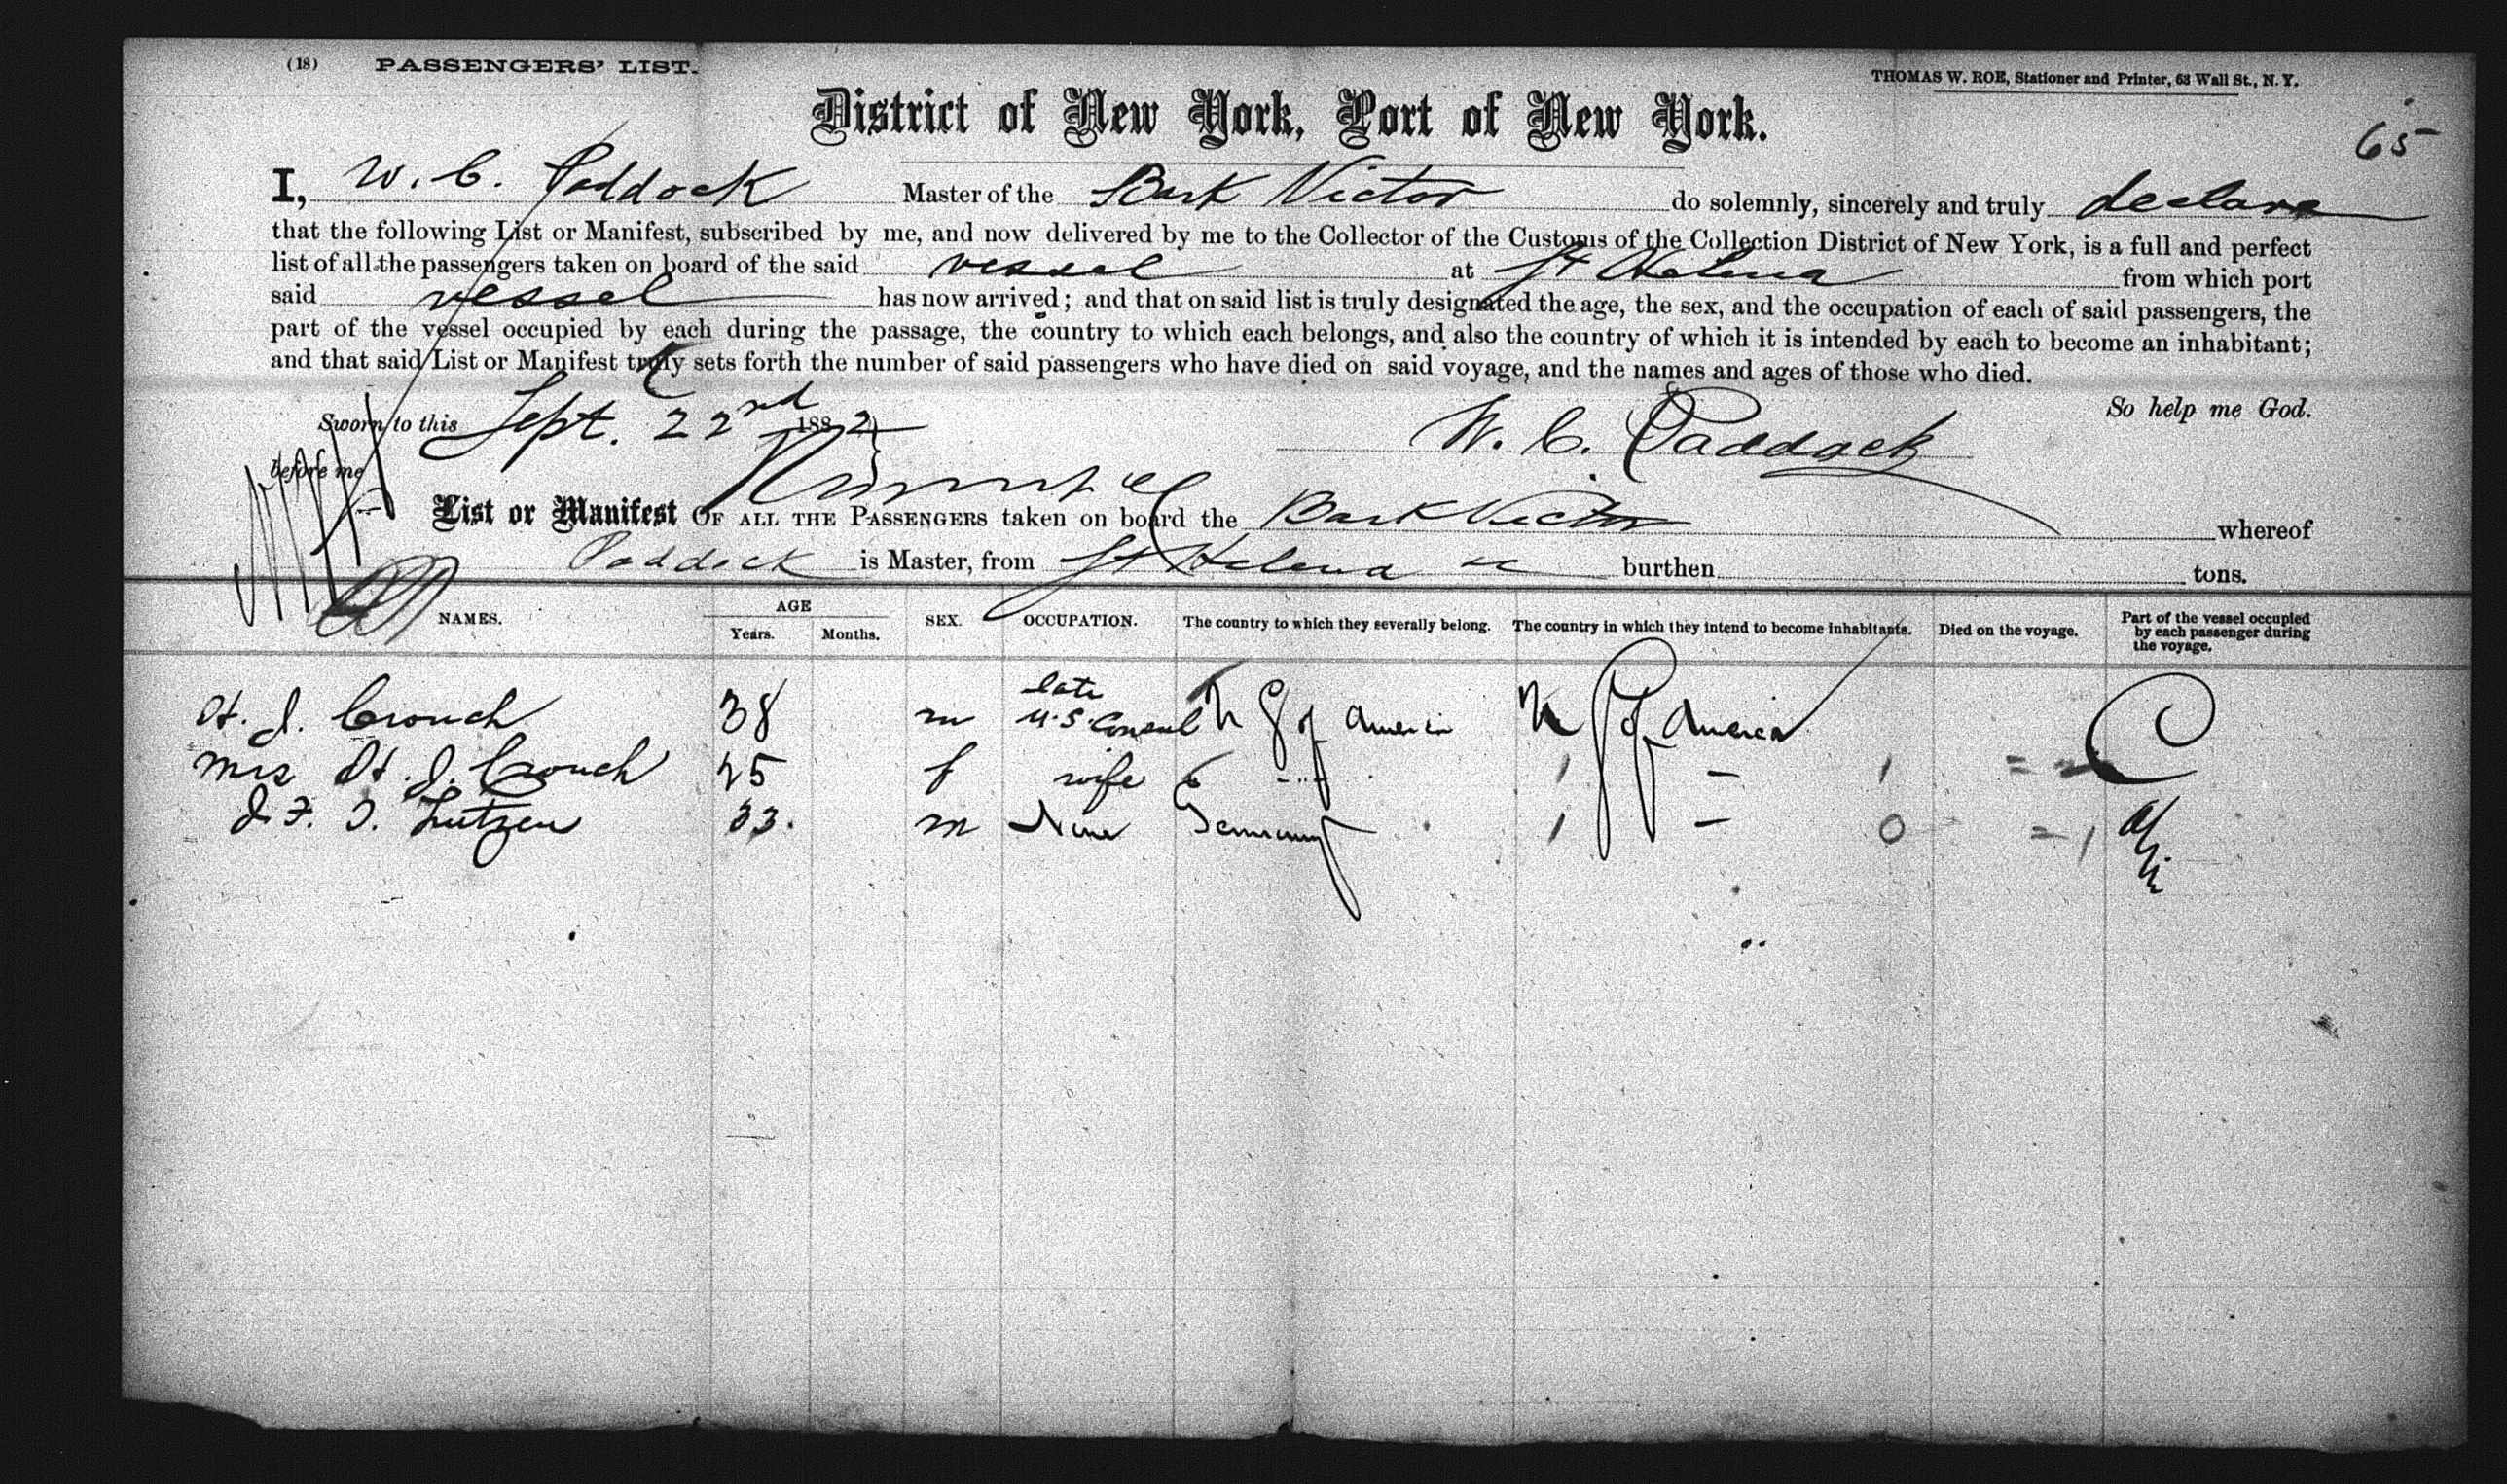 (18) PASSENGERS' LIST.
THOMAS W. ROE, Stationer and Printer, 63 Wall St., N. Y.
District of New York, Port of New York.
65
I, W. C. Paddock Master of the Bark Victor do solemnly, sincerely and truly declare
that the following List or Manifest, subscribed by me, and now delivered by me to the Collector of the Customs of the Collection District of New York, is a full and perfect
list of all the passengers taken on board of the said vessel at St Helena from which port
said vessel has now arrived; and that on said list is truly designated the age, the sex, and the occupation of each of said passengers, the
part of the vessel occupied by each during the passage, the country to which each belongs, and also the country of which it is intended by each to become an inhabitant;
and that said List or Manifest truly sets forth the number of said passengers who have died on said voyage, and the names and ages of those who died.
So help me God.
Sworn to this Sept. 22nd 1882
W. C. Paddock
before me
List or Manifest OF ALL THE PASSENGERS taken on board the Bark Victor whereof
Paddock is Master, from St Helena burthen tons.
NAMES. AGE Years. Months. SEX. OCCUPATION. The country to which they severally belong. The country in which they intend to become inhabitants. Died on the voyage. Part of the vessel occupied by each passenger during the voyage.
H. J. Crouch 38 m late U.S. Consul of America of America
Mrs H. J. Crouch 25 f wife
J. F. T. Lutzen 33. m None Germany